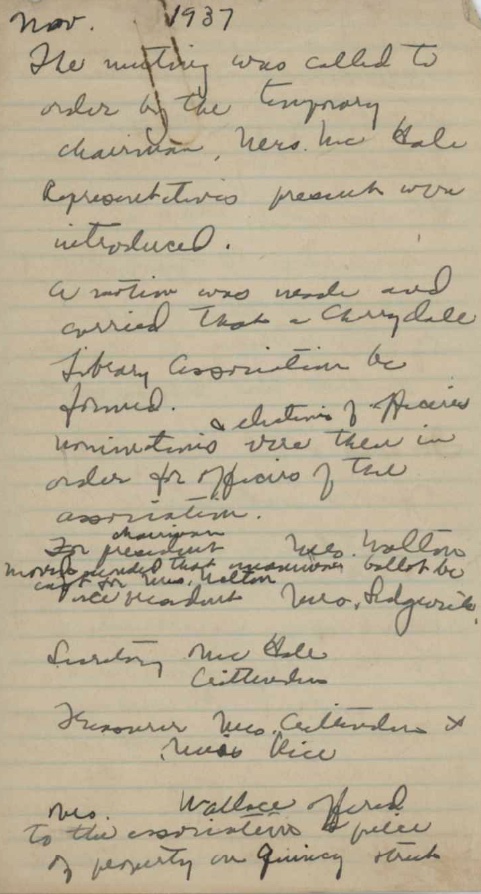 Nov. 1937
The meeting was called to
order by the temporary
chairman, Mrs. McHale
Representatives present were
introduced.
A motion was made and
carried that a Cherrydale
Library Association be
formed.
& elections of officers
nominations were then in
order for officers of the
association.
chairman
For president Mrs. Walton
Moved & seconded that unanimous ballot be
cast for Mrs. Walton
Vice president Mrs. Sedgwick,
Secretary McHale
Crittenden
Treasurer Mrs. Crittenden &
Miss Rice
Mrs. Wallace offered
to the associations a piece
of property on Quincy street